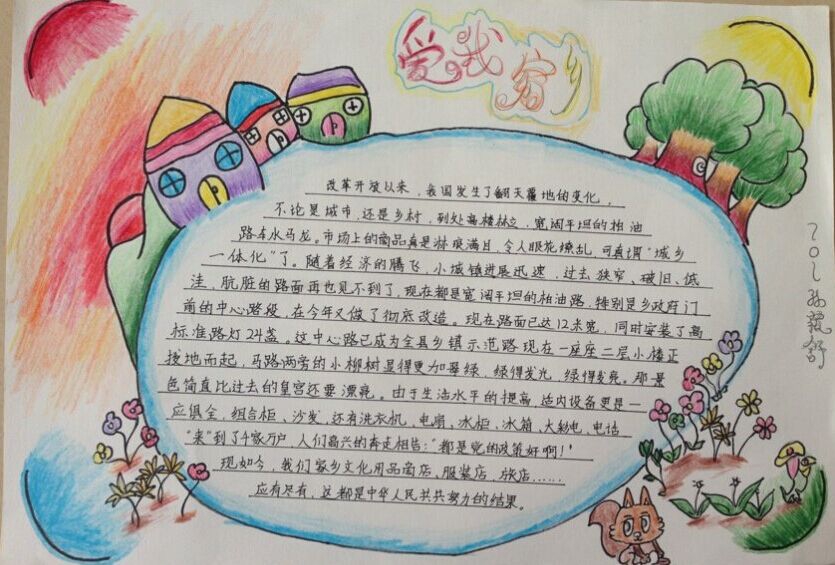 爱我家乡
改革开放以来，我国发生了翻天覆地的变化，
不论是城市，还是乡村，到处高楼林立，宽阔平坦的柏油
路车水马龙。市场上的商品真是琳琅满目，令人眼花缭乱，可真谓“城乡
一体化”了。随着经济的腾飞，小城镇进展迅速，过去狭窄、破旧、低
洼、肮脏的路面再也见不到了，现在都是宽阔平坦的柏油路，特别是乡政府门
前的中心路段，在今年又做了彻底改造。现在路面已达12米宽，同时安装了高
标准路灯24盏。这中心路已成为全县乡镇示范路现在一座座二层小楼正
拔地而起，马路两旁的小柳树显得更加翠绿，绿得发光，绿得发亮。那景
色简直比过去的皇宫还要漂亮。由于生活水平的提高，适内设备更是一
应俱全，组合柜、沙发，还有洗衣机，电扇，冰柜，冰箱、大彩电、电话
“来”到了千家万户，人们高兴的奔走相告：“都是党的政策好啊！”
现如今，我们家乡文化用品商店、服装店，旅店……
应有尽有，这都是中华人民共共努力的结果。
701